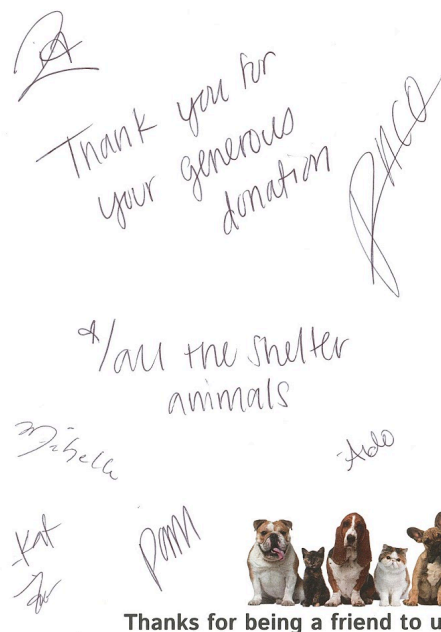 Thank you for
your generous
donation
PACO
&/all the shelter
animals
Michelle
-Aldo
Kat
pam
Thanks for being a friend to u